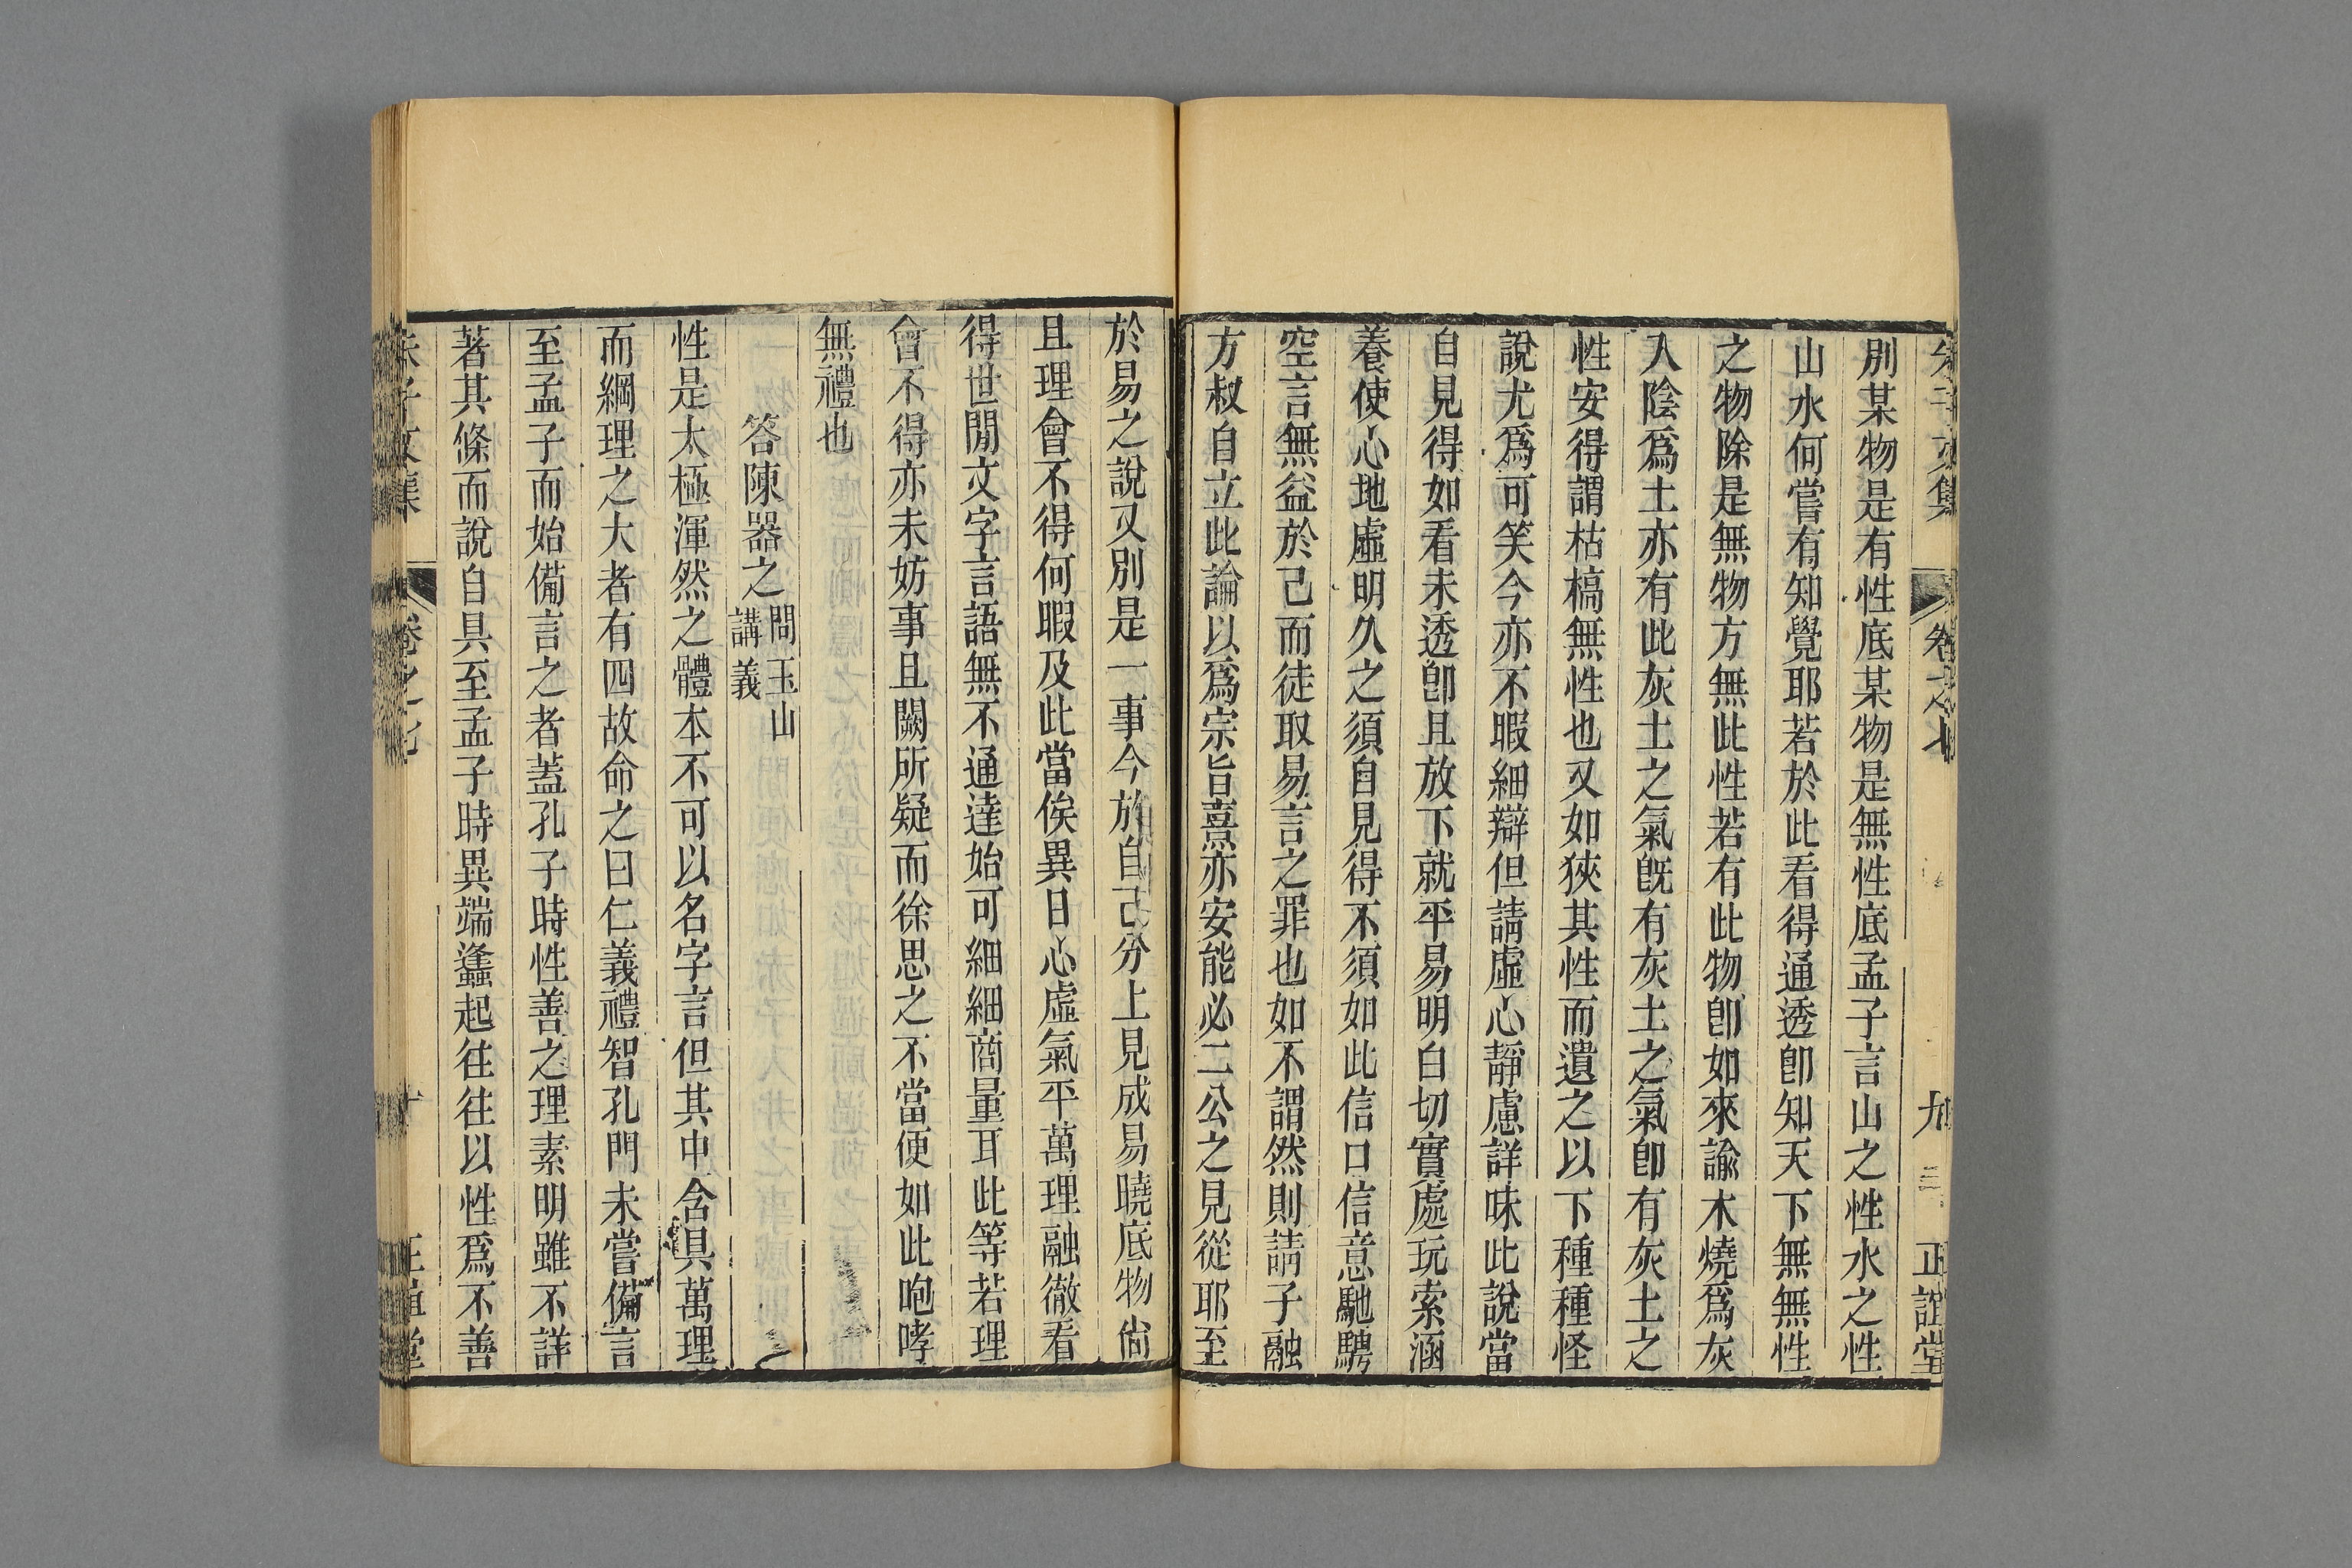 朱子文集 卷之七 九 正誼堂
別某物是有性底某物是無性底孟子言山之性水之性
山水何嘗有知覺耶若於此看得通透卽知天下無無性
之物除是無物方無此性若有此物卽如來諭木燒爲灰
入陰爲土亦有此灰土之氣旣有灰土之氣卽有灰土之
性安得謂枯槁無性也又如狹其性而遺之以下種種怪
說尤爲可笑今亦不暇細辯但請虛心靜慮詳味此說當
自見得如看未透卽且放下就平易明白切實處玩索涵
養使心地虛明久之須自見得不須如此信口信意馳騁
空言無益於己而徒取易言之罪也如不謂然則請子融
方叔自立此論以爲宗旨熹亦安能必二公之見從耶至
於易之說又別是一事今於自己分上見成易曉底物尙
且理會不得何暇及此當俟異日心虛氣平萬理融徹看
得世閒文字言語無不通達始可細細商量耳此等若理
會不得亦未妨事且闕所疑而徐思之不當便如此咆哮
無禮也
答陳器之問玉山講義
性是太極渾然之體本不可以名字言但其中含具萬理
而綱理之大者有四故命之曰仁義禮智孔門未嘗備言
至孟子而始備言之者蓋孔子時性善之理素明雖不詳
著其條而說自具至孟子時異端蠭起往往以性爲不善
朱子文集 卷之七 十 正誼堂